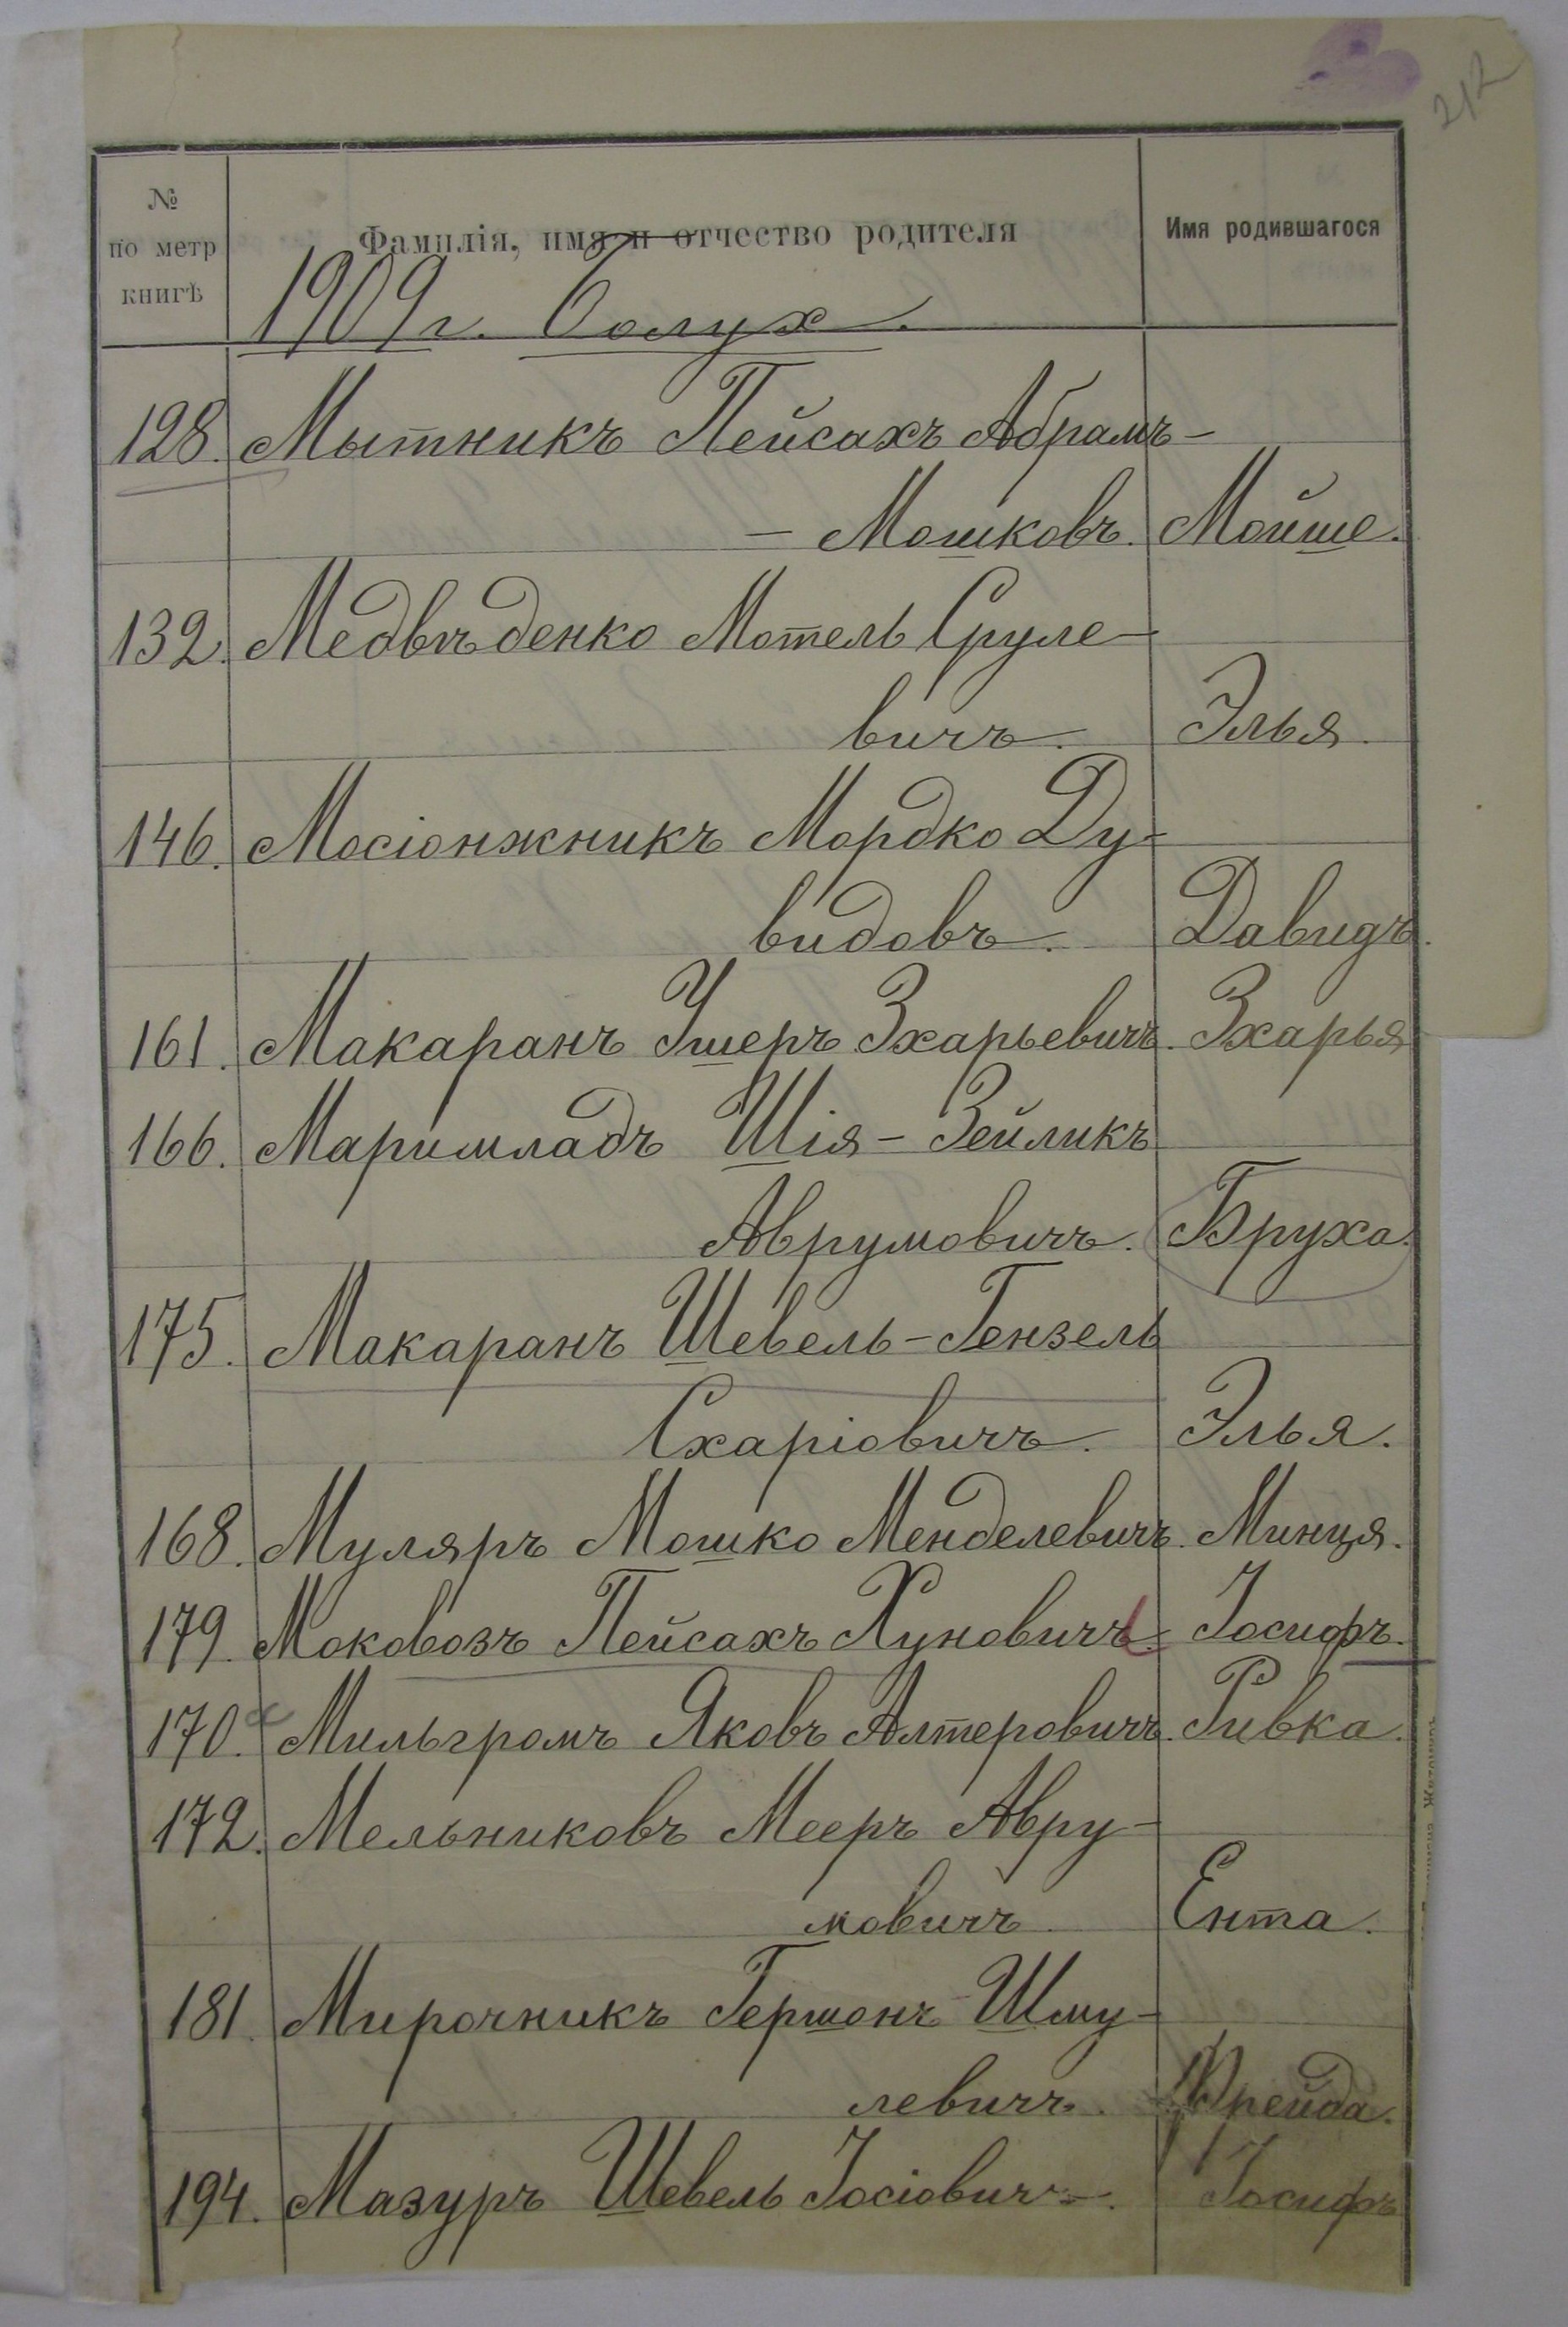 212
№ по метр книгѣ
Фамилія, имя и отчество родителя
Имя родившагося
1909 г. Болух.
128. Мытникъ Пейсахъ Абрамъ-
- Мошковъ. Мойше.
132. Медвѣденко Мотель Сруле-
вичъ. Элья.
146. Мосіонжникъ Мордко Ду-
видовъ. Давидъ.
161. Макаранъ Ушеръ Зхарьевичъ. Зхарья
166. Маримладъ Шія-Зейликъ
Аврумовичъ. Бруха.
175. Макаранъ Шевель-Гензель
Схаріовичъ. Элья.
168. Муляръ Мошко Менделевичъ. Минця.
179. Моковозъ Пейсахъ Хуновичъ Іосифъ.
170. Мильгромъ Яковъ Алтеровичъ. Ривка.
172. Мельниковъ Мееръ Авру-
мовичъ Ента.
181. Мирочникъ Гершонъ Шму-
левичъ. Фрейда.
194. Мазуръ Шевель Іосіовичъ. Іосифъ